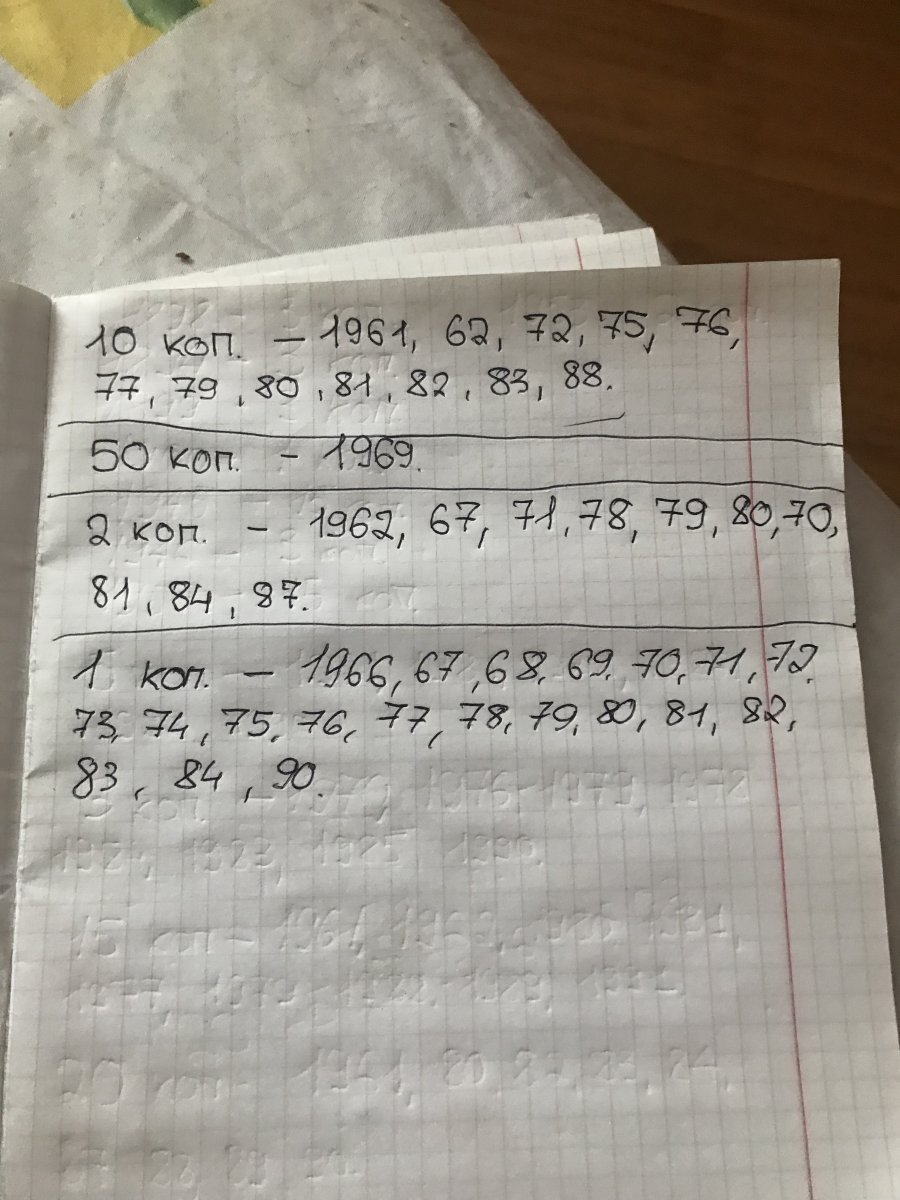 10 коп. – 1961, 62, 72, 75, 76,
77, 79, 80, 81, 82, 83, 88.
50 коп. – 1969.
2 коп. – 1962, 67, 71, 78, 79, 80, 70,
81, 84, 87.
1 коп. – 1966, 67, 68, 69, 70, 71, 72,
73, 74, 75, 76, 77, 78, 79, 80, 81, 82,
83, 84, 90.